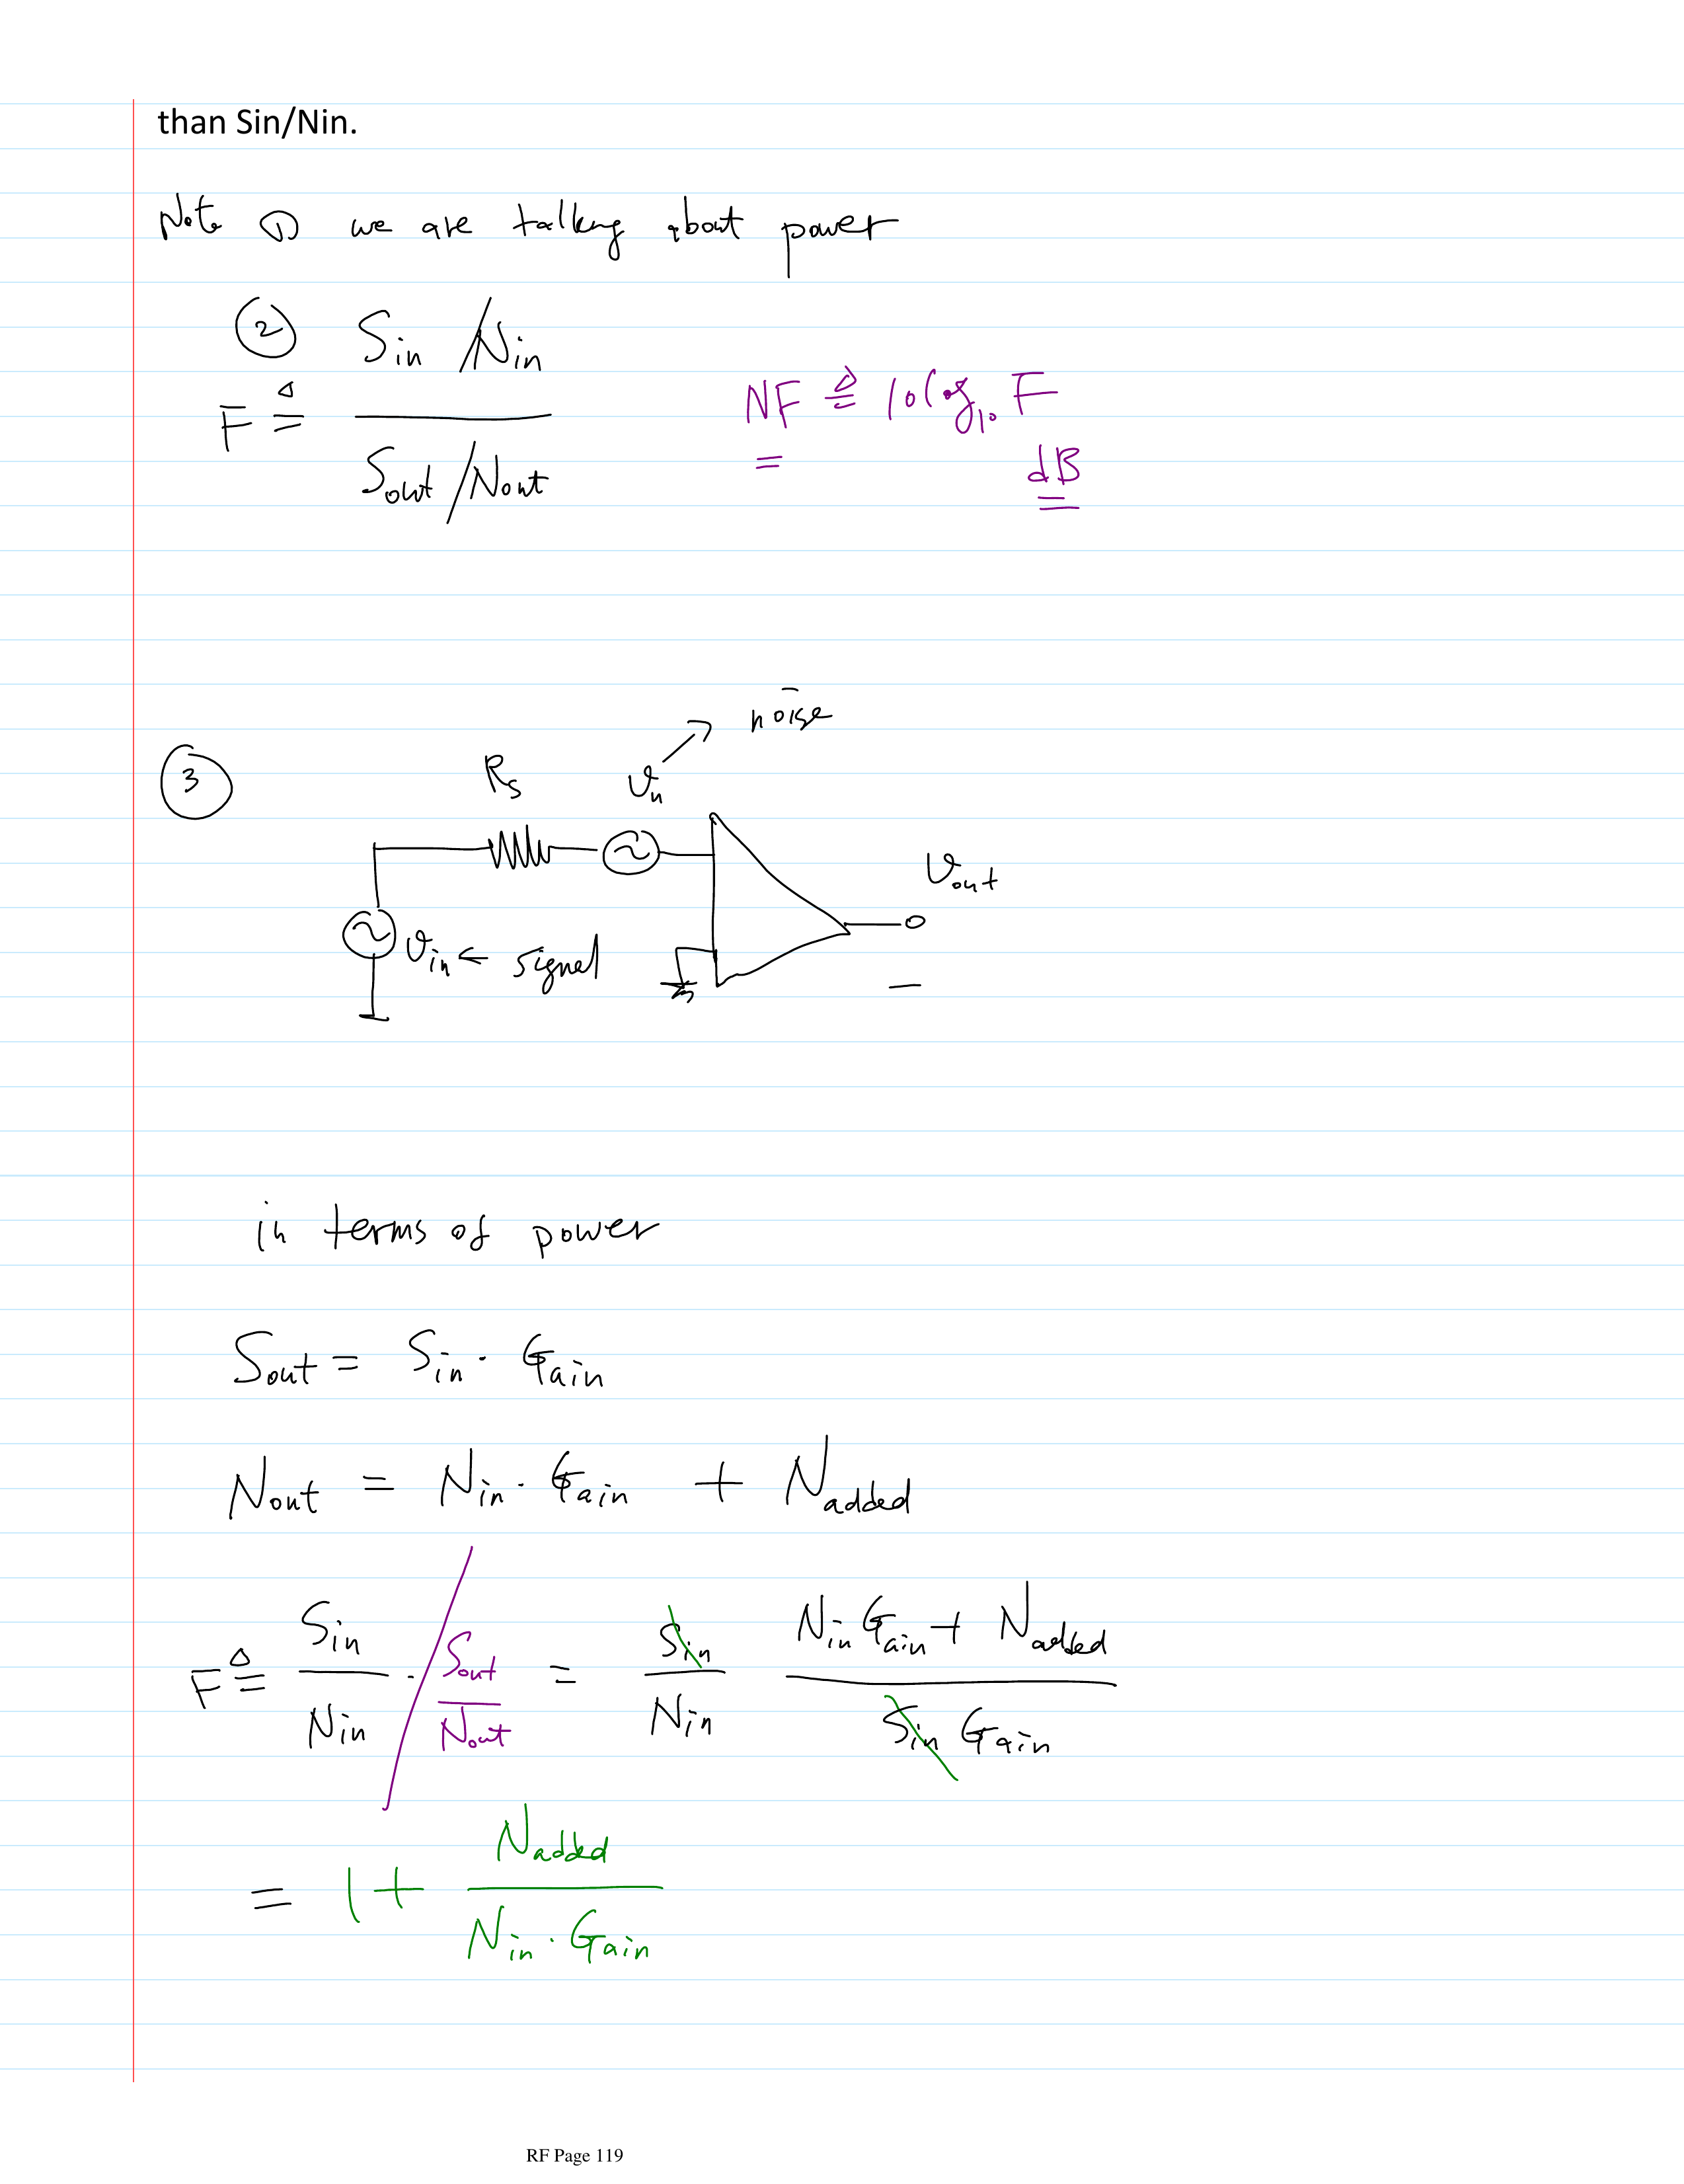 than Sin/Nin.
Note ① we are talking about power
② Sin / Nin
F ≜
Sout / Nout
NF ≜ 10log₁₀ F
= dB
noise
③ Rs vn
vout
vin ← signal
in terms of power
Sout = Sin · Gain
Nout = Nin · Gain + Nadded
F ≜ Sin/Nin · / Sout/Nout = Sin/Nin (Nin Gain + Nadded)/(Sin Gain)
= 1 + Nadded/(Nin · Gain)
RF Page 119